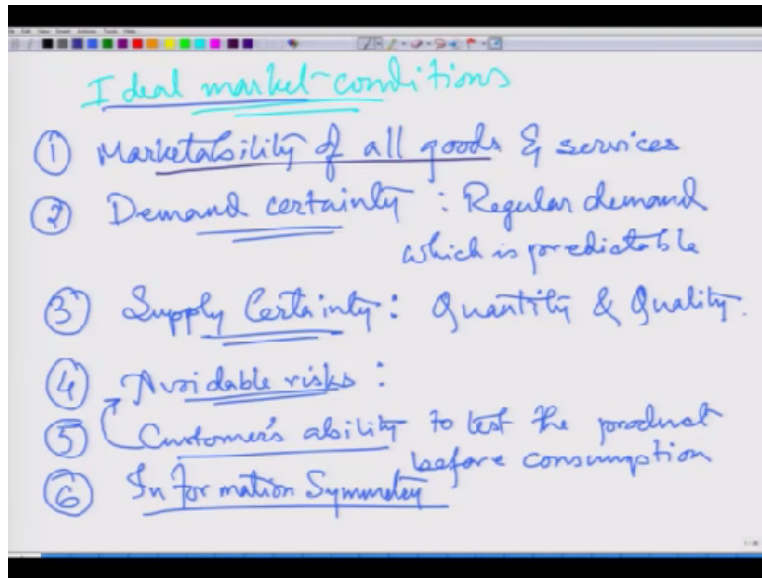 Ideal market-conditions
① Marketability of all goods & services
② Demand certainty : Regular demand
which is predictable
③ Supply Certainty : Quantity & Quality.
④ Avoidable risks :
⑤ Customer's ability to test the product
before consumption
⑥ Information Symmetry